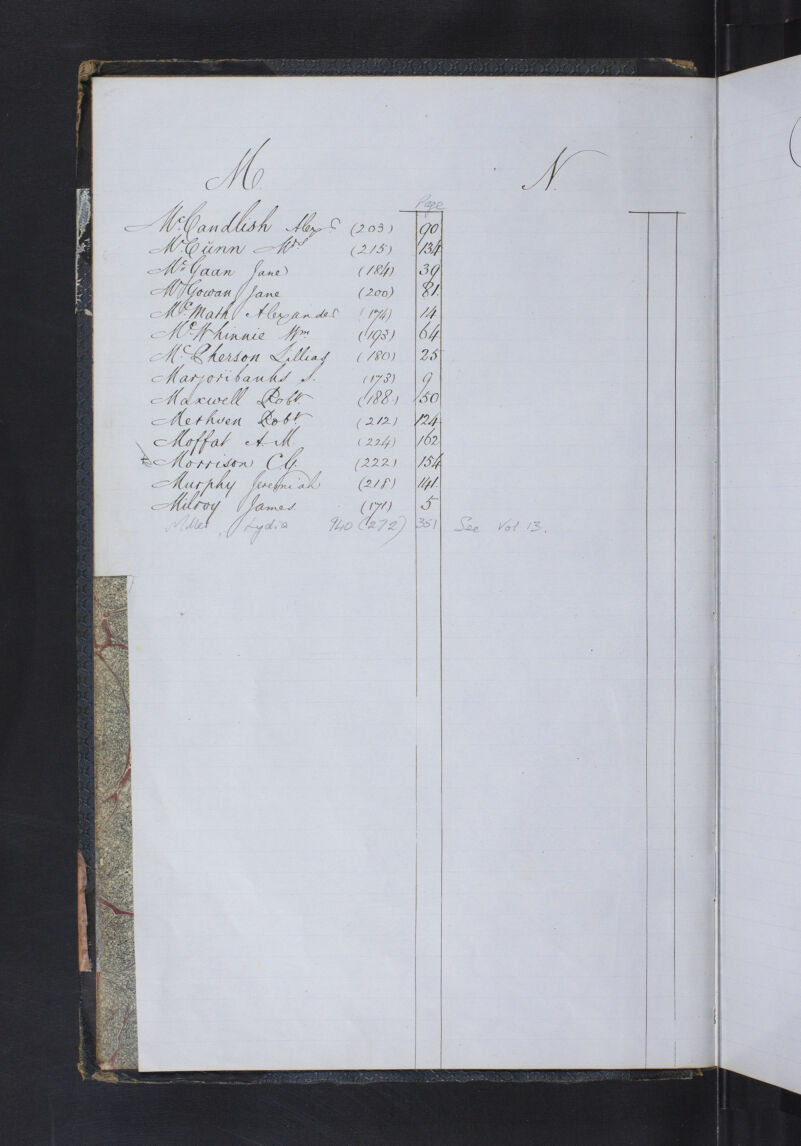 M. N.
Page
McCandlish Alexr (203) 90
McCunn Mrs (215) 134
McGaan Jane (184) 39
McGowan Jane (200) 81
McMath Alexander (174) 14
McWhinnie Wm (193) 64
McPherson Lillias (180) 25
Marjoribanks S. (173) 9
Maxwell Robt (188) 50
Methven Robt (212) 124
Moffat A M (224) 162
Morrison C G. (222) 154
Murphy Jeremiah (218) 141
Milroy James (171) 5
Miller, Lydia 940 (272) 351 See Vol 13.